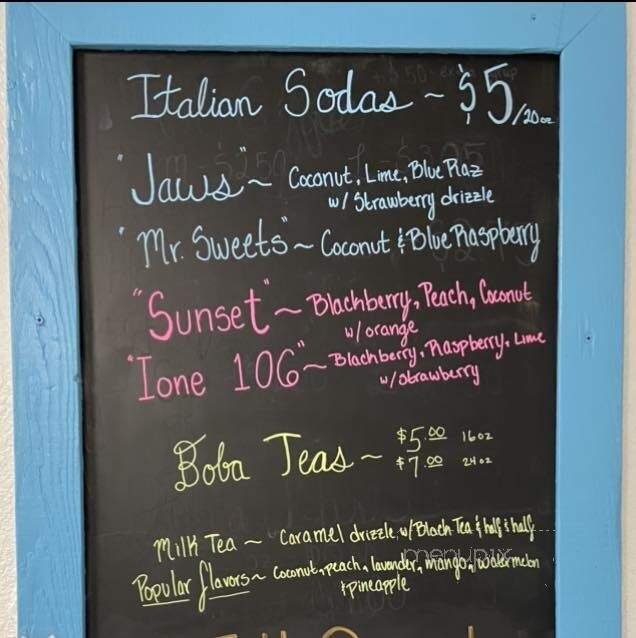 Italian Sodas ~ $5/20oz
"Jaws" ~ Coconut, Lime, Blue Raz
w/ Strawberry drizzle
"Mr. Sweets" ~ Coconut & Blue Raspberry
"Sunset" ~ Blackberry, Peach, Coconut
w/ orange
"Ione 106" ~ Blackberry, Raspberry, Lime
w/ strawberry
Boba Teas ~ $5.00 16oz
$7.00 24oz
Milk Tea ~ Caramel drizzle w/ Black Tea & half & half
Popular flavors ~ Coconut, peach, lavender, mango, watermelon
& pineapple
menupix